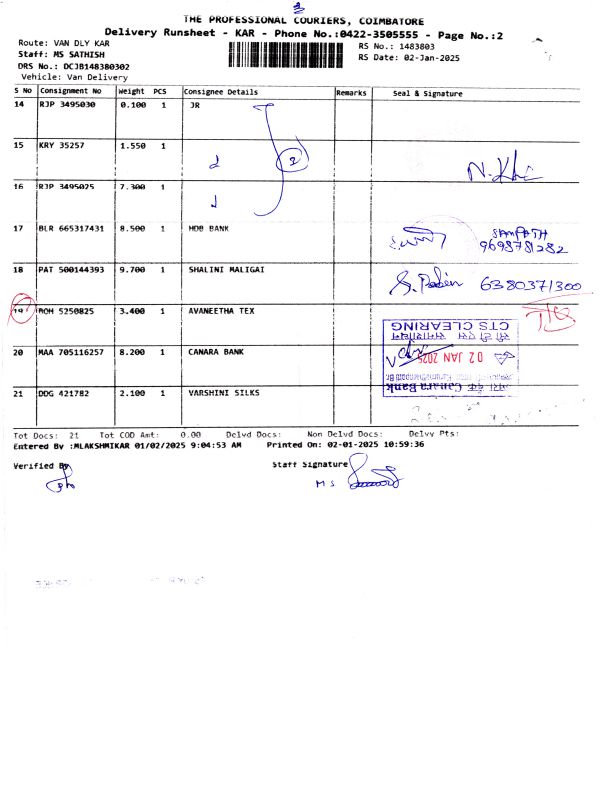 THE PROFESSIONAL COURIERS, COIMBATORE
Delivery Runsheet - KAR - Phone No.:0422-3505555 - Page No.:2
Route: VAN DLY KAR
Staff: MS SATHISH
DRS No.: DCJB148380302
Vehicle: Van Delivery
RS No.: 1483803
RS Date: 02-Jan-2025
S No Consignment No Weight PCS Consignee Details Remarks Seal & Signature
14 RJP 3495030 0.100 1 JR
15 KRY 35257 1.550 1
16 RJP 3495025 7.300 1
17 BLR 665317431 8.500 1 HDB BANK
SAMPATH
9698781282
18 PAT 500144393 9.700 1 SHALINI MALIGAI
6380371300
19 ROH 5250825 3.400 1 AVANEETHA TEX
20 MAA 705116257 8.200 1 CANARA BANK
CTS CLEARING
02 JAN 2025
Canara Bank
21 DDG 421782 2.100 1 VARSHINI SILKS
Tot Docs: 21 Tot COD Amt: 0.00 Delvd Docs: Non Delvd Docs: Delvy Pts:
Entered By :MLAKSHMIKAR 01/02/2025 9:04:53 AM Printed On: 02-01-2025 10:59:36
Verified By
Staff Signature
M S